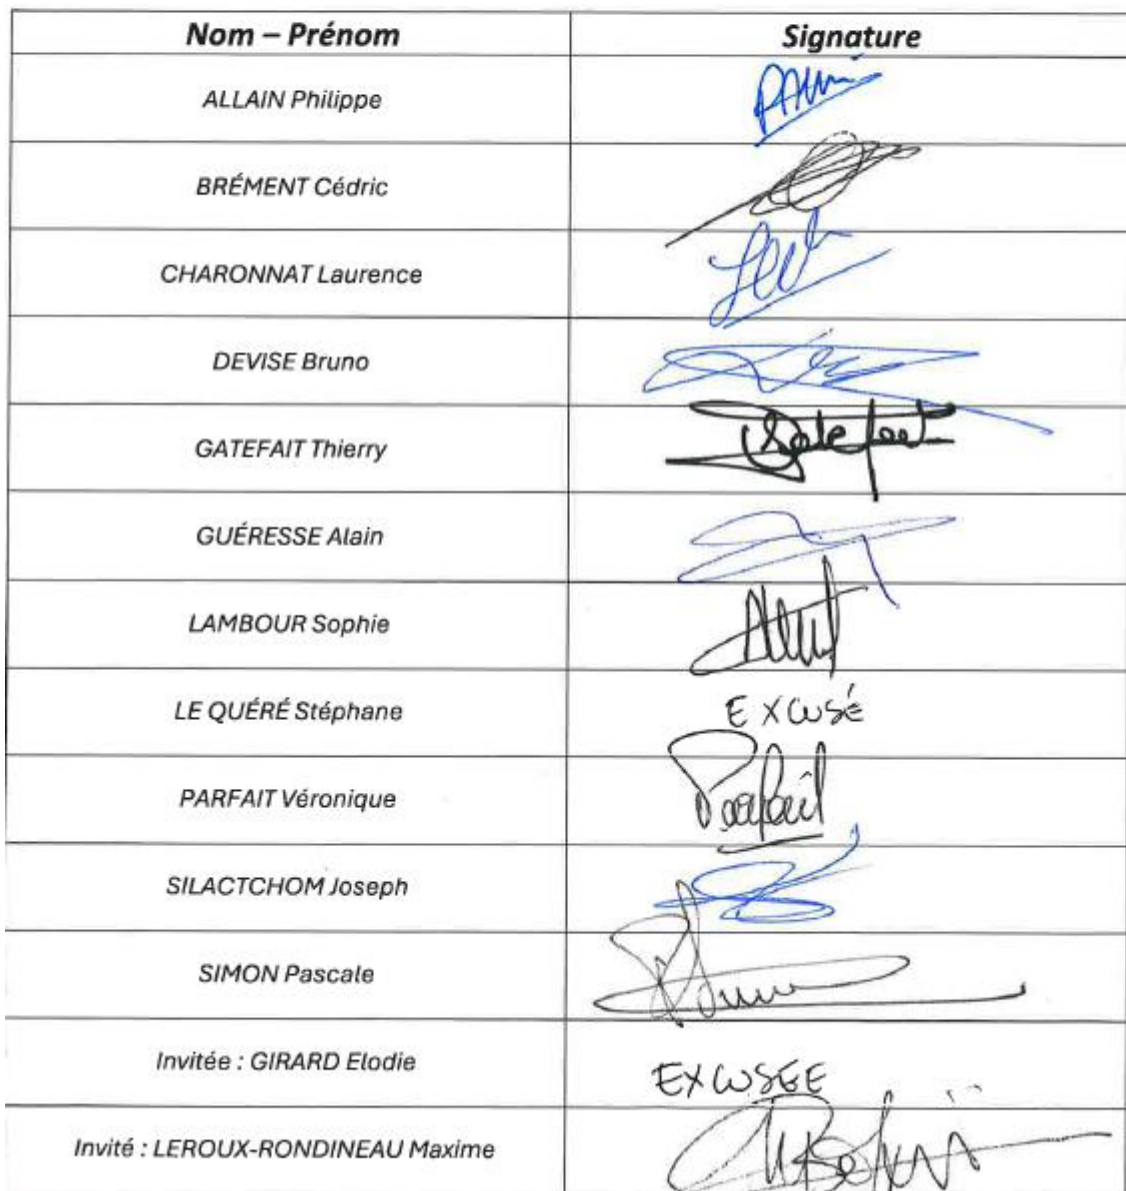 Nom – Prénom Signature
ALLAIN Philippe
BRÉMENT Cédric
CHARONNAT Laurence
DEVISE Bruno
GATEFAIT Thierry
GUÉRESSE Alain
LAMBOUR Sophie
LE QUÉRÉ Stéphane EXCUSÉ
PARFAIT Véronique Parfait
SILACTCHOM Joseph
SIMON Pascale
Invitée : GIRARD Elodie EXCUSEE
Invité : LEROUX-RONDINEAU Maxime